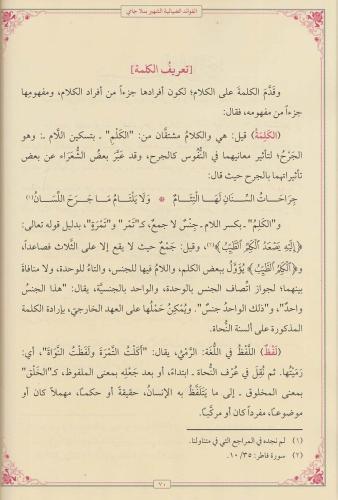 الفوائد الضيائية الشهير بملا جامي
[تعريفُ الكلمة]
وقَدَّمَ الكلمةَ على الكلام؛ لكون أفرادها جزءاً من أفراد الكلام، ومفهومِها
جزءاً من مفهومه، فقال:
(الكَلِمَةُ) قيل: هي والكلامُ مشتقَّان من: "الكَلْمِ" ـ بتسكين اللَّام ـ: وهو
الجَرْحُ؛ لتأثير معانيهما في النُّفُوس كالجرح، وقد عبَّرَ بعضُ الشُّعَراء عن بعض
تأثيراتهما بالجرح حيث قال:
جِرَاحَاتُ السِّنَانِ لَهَا الْتِئَامٌ * وَلَا يَلْتَامُ مَا جَرَحَ اللِّسَانُ(١)
و"الكَلِمُ" ـ بكسر اللام ـ جِنْسٌ لا جمعٌ، كـ"تَمْر" و"تَمْرَة"، بدليل قوله تعالى:
﴿إِلَيْهِ يَصْعَدُ الْكَلِمُ الطَّيِّبُ﴾(٢)، وقيل: جَمْعٌ حيث لا يقع إلا على الثَّلاث فصاعداً،
و﴿الْكَلِمُ الطَّيِّبُ﴾ يُؤَوَّلُ ببعض الكلم، واللامُ فيها للجنس، والتاءُ للوحدة، ولا منافاةَ
بينهما؛ لجواز اتِّصاف الجنس بالوحدة، والواحد بالجنسيَّة، يقال: "هذا الجنسُ
واحدٌ"، و"ذلك الواحدُ جنسٌ". ويُمكِنُ حَمْلُها على العهد الخارجيِّ، بإرادة الكلمة
المذكورة على ألسنة النُّحاة.
(لَفْظٌ) اللَّفْظُ في اللُّغَة: الرَّمْيُ، يقال: "أَكَلْتُ التَّمْرَةَ ولَفَظْتُ النَّوَاةَ"، أي:
رَمَيْتُها. ثم نُقِلَ في عُرْف النُّحاة ـ ابتداءً، أو بعد جَعْلِه بمعنى الملفوظ، كـ"الخَلْق"
بمعنى المخلوق ـ إلى ما يَتَلَفَّظُ به الإنسانُ، حقيقةً أو حكماً، مهملاً كان أو
موضوعاً، مفرداً كان أو مركَّباً.
(١) لم نجده في المراجع التي في متناولنا.
(٢) سورة فاطر: ١٠/٣٥.
٧٠